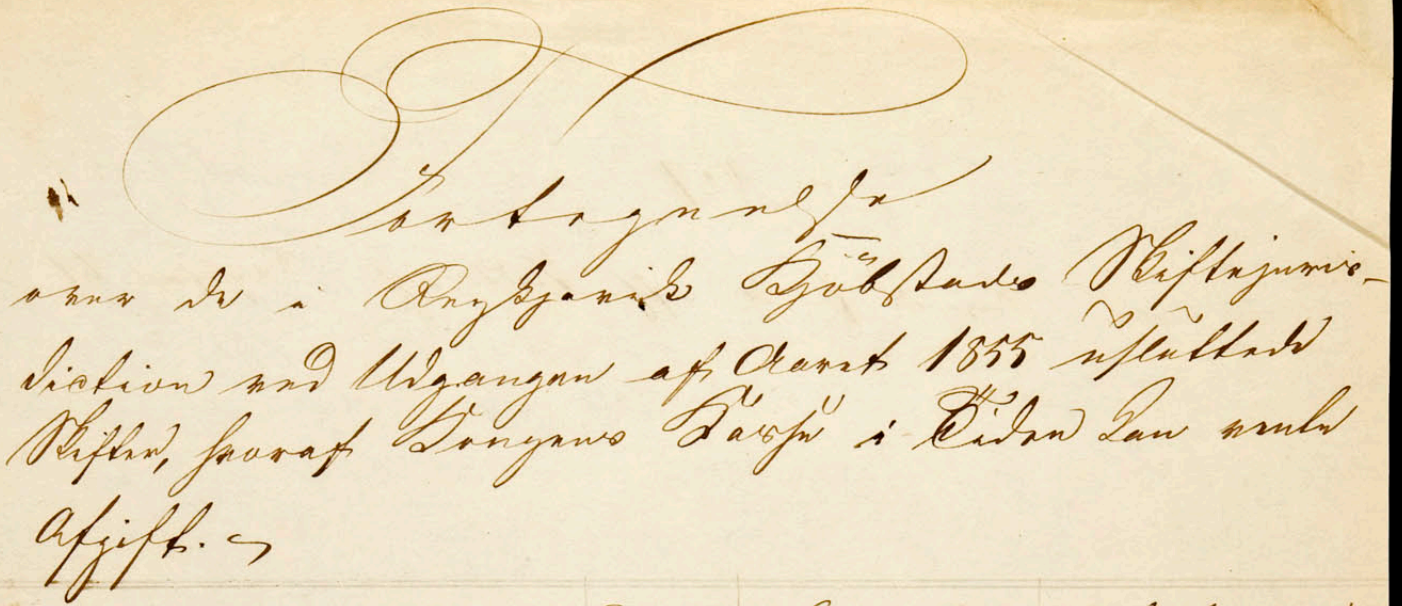 Fortegnelse
over de i Reykjavik Kjöbstads Skiftejuris-
diction ved Udgangen af Aaret 1855 usluttede
Skifter, hvoraf Kongens Kasse i Tiden kan vente
Afgift.